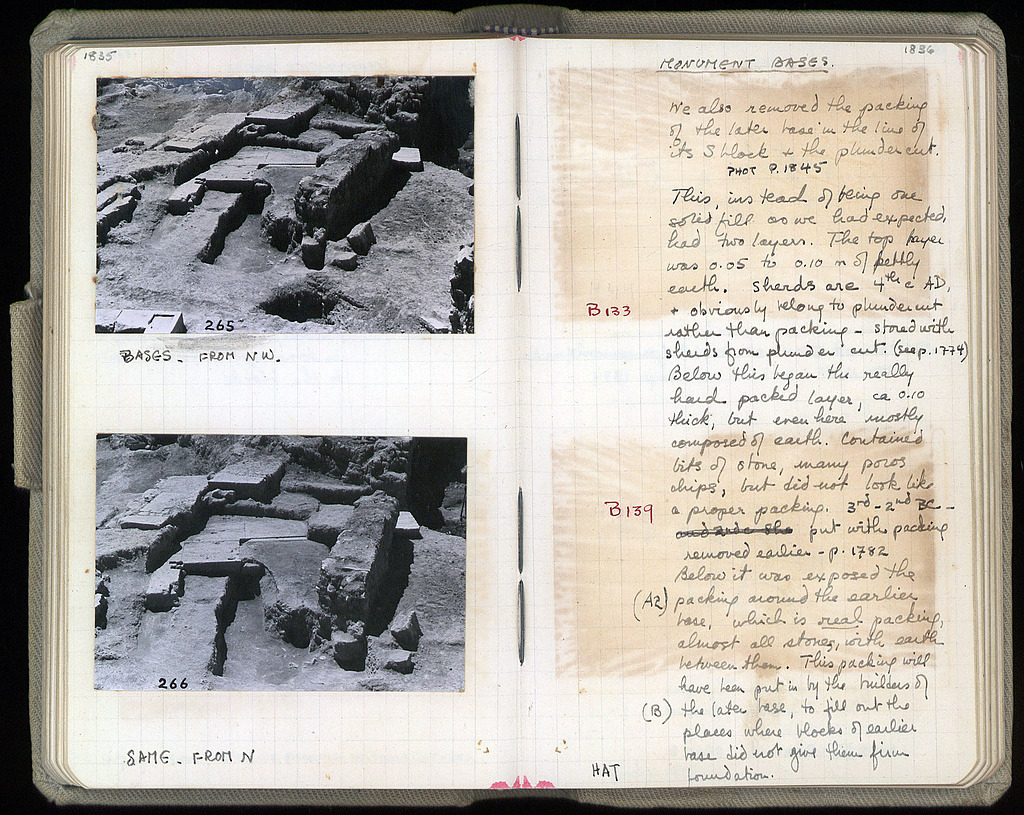 1835
265
BASES - FROM NW.
266
SAME - FROM N
1836
MONUMENT BASES.
We also removed the packing
of the later base in the line of
its S block + the plunder cut.
PHOT P. 1845
This, instead of being one
solid fill as we had expected,
had two layers. The top layer
was 0.05 to 0.10 m of pebbly
earth. Sherds are 4th c AD,
B133
+ obviously belong to plunder cut
rather than packing - stored with
sherds from plunder cut. (see p. 1774)
Below this began the really
hard packed layer, ca 0.10
thick, but even here mostly
composed of earth. Contained
bits of stone, many poros
chips, but did not look like
a proper packing. 3rd - 2nd BC -
B139
put with packing
removed earlier - p. 1782
Below it was exposed the
(A2) packing around the earlier
base, which is real packing,
almost all stones, with earth
between them. This packing will
have been put in by the builders of
(B) the later base, to fill out the
places where blocks of earlier
base did not give them firm
foundation.
HAT